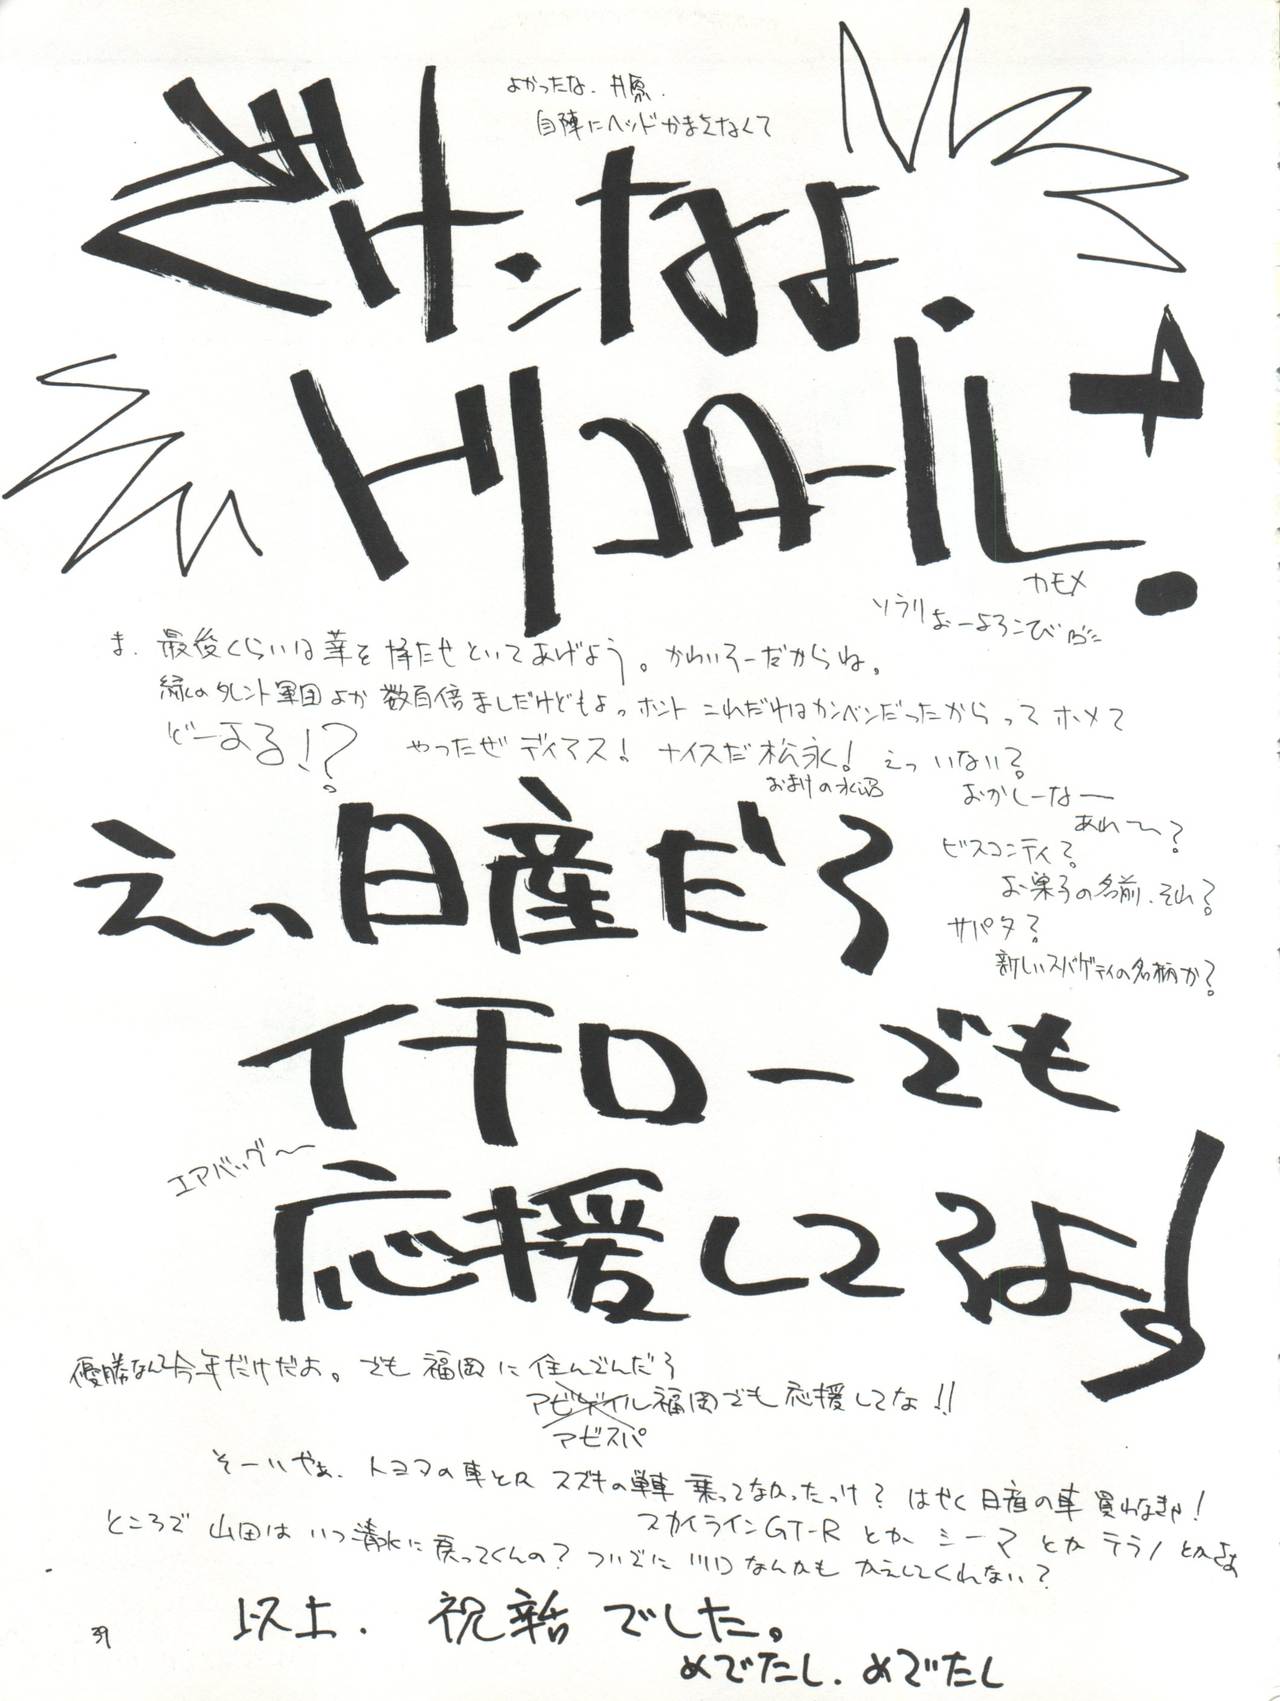 よかったな、井原、
自陣にヘッドかまさなくて
ざけンなよ、
トリコロール!
カモメ
ソラリ
おーよろこびβに
ま、最後くらいは華を持たせといてあげよう。かわいそーだからね。
緑のタレント軍団よか数百倍ましだけどもよっ ホント これだけはカンベンだったからってホメて
どーする!?
やったぜディアス! ナイスだ松永! えっ いない?
おまけの水沼
おかしーなー
あれ〜?
ビスコンティ?
お菓子の名前、それ?
サパタ?
新しいスパゲティの名柄か?
えっ、日産だろ
イチローでも
エアバッグ〜
応援してろよ!
優勝なんて今年だけだよ。でも福岡に住んでんだろ
アビゲイル福岡でも応援してな!!
アビスパ
そーいやぁ、トヨタの車とR スズキの単車 乗ってなかったっけ? はやく日産の車買わなきゃ!
スカイラインGT-R とか シーマ とか テラノ とかよぉ
ところで 山田は いつ清水に戻ってくんの? ついでに 川口なんかも かえしてくれない?
以上、祝辞でした。
めでたし、めでたし
39